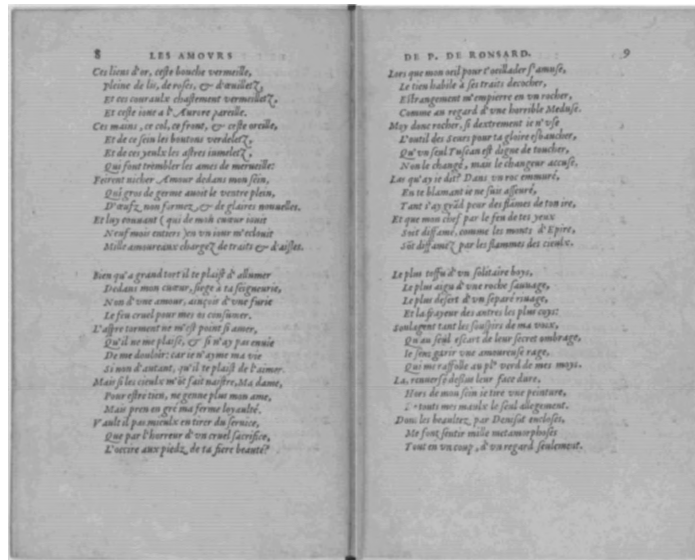 8 LES AMOVRS
Ces liens d'or, ceste bouche vermeille,
Pleine de lis, de roses, & d'œuilletz,
Et ces couraulx chastement vermeilletz,
Et ceste ioue a l'Aurore pareille.
Ces mains, ce col, ce front, & ceste oreille,
Et de ce sein les boutons verdeletz,
Et de ces yeulx les astres iumeletz,
Qui font trembler les ames de merueille:
Feirent nicher Amour dedans mon sein,
Qui gros de germe auoit le ventre plein,
D'œufz non formez & de glaires nouuelles.
Et luy couuant (qui de mon cœur iouit
Neuf mois entiers) en vn iour m'eclouit
Mille amoureaux chargez de traits & d'aisles.
Bien qu'a grand tort il te plaist d'allumer
Dedans mon cœur, siege à ta seigneurie,
Non d'vne amour, ainçois d'vne furie
Le feu cruel pour mes os consumer.
L'aspre torment ne m'est point si amer,
Qu'il ne me plaise, & si n'ay pas enuie
De me douloir: car ie n'ayme ma vie
Si non d'autant, qu'il te plaist de l'aimer.
Mais si les cieulx m'ōt fait naistre, Ma dame,
Pour estre tien, ne genne plus mon ame,
Mais pren en gré ma ferme loyaulté.
Vault il pas mieulx en tirer du seruice,
Que par l'horreur d'vn cruel sacrifice,
L'occire aux piedz de ta fiere beauté?
DE P. DE RONSARD. 9
Lors que mon oeil pour t'oeillader s'amuse,
Le tien habile à ses traits decocher,
Estrangement m'empierre en vn rocher,
Comme au regard d'vne horrible Meduse.
Moy donc rocher, si dextrement ie n'vse
L'outil des Seurs pour ta gloire esbaucher,
Qu'vn seul Tuscan est digne de toucher,
Non le changé, mais le changeur accuse.
Las qu'ay ie dit? Dans vn roc emmuré,
En te blamant ie ne suis asseuré,
Tant i'ay grād peur des flāmes de ton ire,
Et que mon chef par le feu de tes yeux
Soit diffamé, comme les monts d'Epire,
Sōt diffamez par les flammes des cieulx.
Le plus toffu d'vn solitaire boys,
Le plus aigu d'vne roche sauuage,
Le plus desert d'vn separé riuage,
Et la frayeur des antres les plus coys:
Soulagent tant les souspirs de ma voix,
Qu'au seul escart de leur secret ombrage,
Ie sens garir vne amoureuse rage,
Qui me raffolle au pl' verd de mes moys.
La, renuersé dessus leur face dure,
Hors de mon sein ie tire vne peinture,
De touts mes maulx le seul allegement.
Dont les beaultez par Denisot encloses,
Me font sentir mille metamorphoses
Tout en vn coup, d'vn regard seulement.